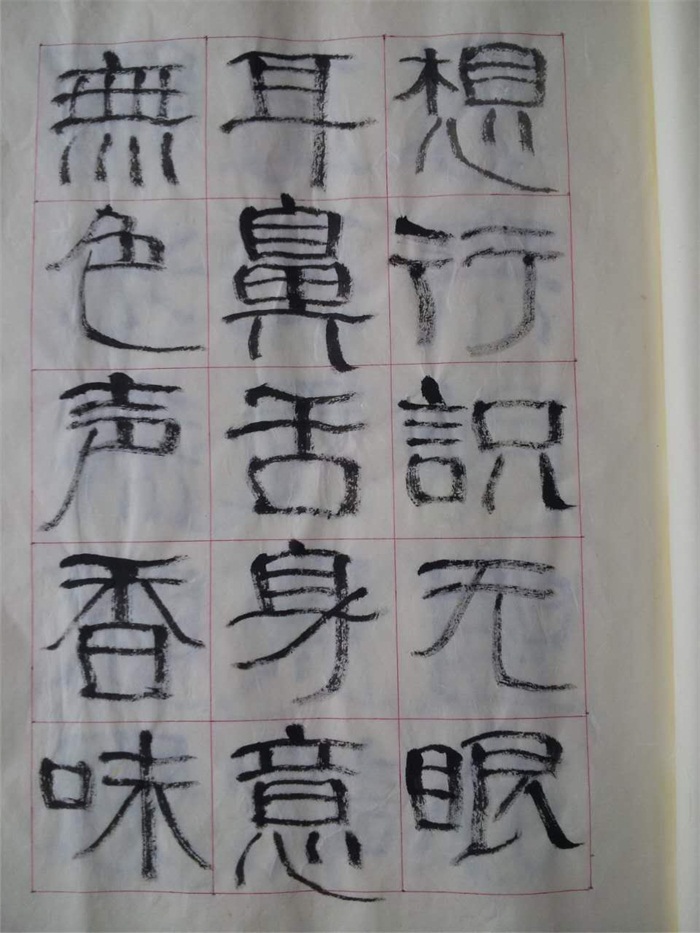 想行识无眼
耳鼻舌身意
無色声香味